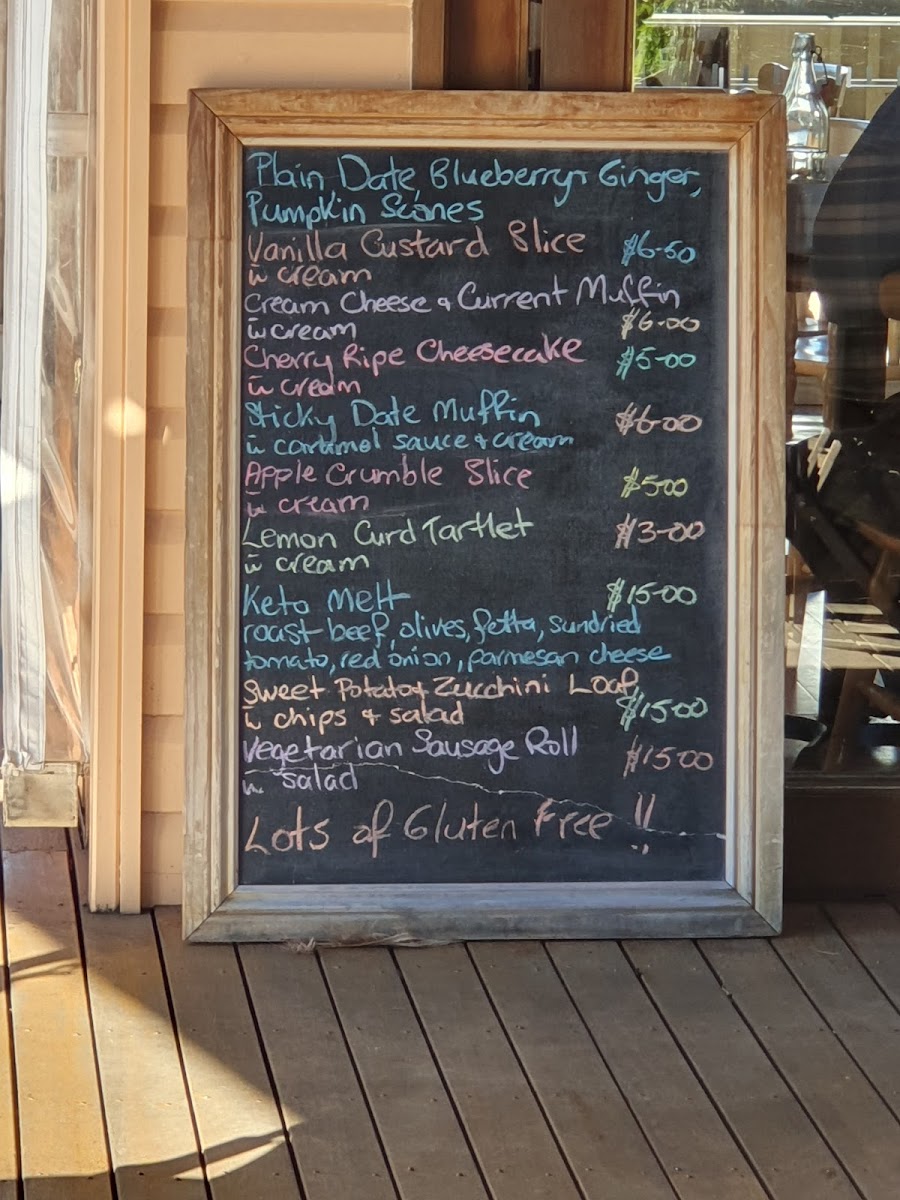 Plain, Date, Blueberry + Ginger,
Pumpkin Scones
Vanilla Custard Slice $6-50
w cream
Cream Cheese & Current Muffin
w cream $6-00
Cherry Ripe Cheesecake $5-00
w cream
Sticky Date Muffin $6-00
w caramel sauce + cream
Apple Crumble Slice $5-00
w cream
Lemon Curd Tartlet $3-00
w cream
Keto Melt $15-00
roast beef, olives, fetta, sundried
tomato, red onion, parmesan cheese
Sweet Potato + Zucchini Loaf
w chips + salad $15-00
Vegetarian Sausage Roll $15-00
w salad
Lots of Gluten Free !!